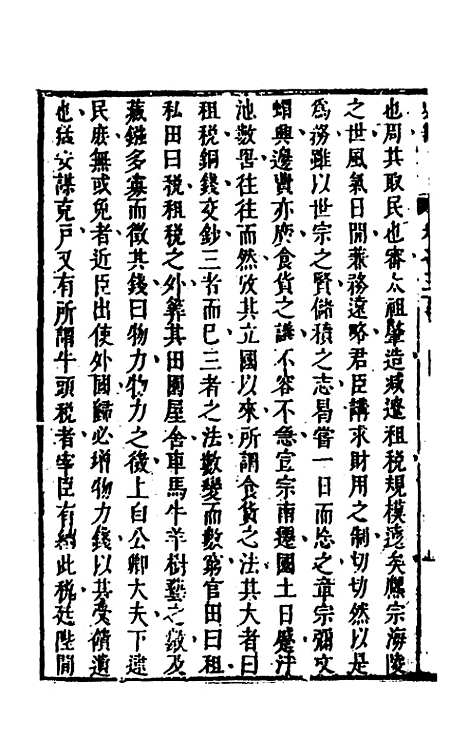 也周其取民也審太祖肇造減遼租稅規模遠矣熙宗海陵
之世風氣日開兼務遠略君臣講求財用之制切切然以是
爲務雖以世宗之賢儲積之志曷嘗一日而忘之章宗彌文
煟興邊費亦廣食貨之議不容不急宣宗南遷國土日蹙汙
池數罟往往而然攷其立國以來所謂食貨之法其大者曰
租稅銅錢交鈔三者而已三者之法數變而數窮官田曰租
私田曰稅租稅之外筭其田園屋舍車馬牛羊樹藝之數及
藏鏹多寡而徵其錢曰物力物力之徵上自公卿大夫下逮
民庶無或免者近臣出使外國歸必增物力錢以其受饋遺
也猛安謀克戶又有所謂牛頭稅者宰臣有納此稅廷陛間